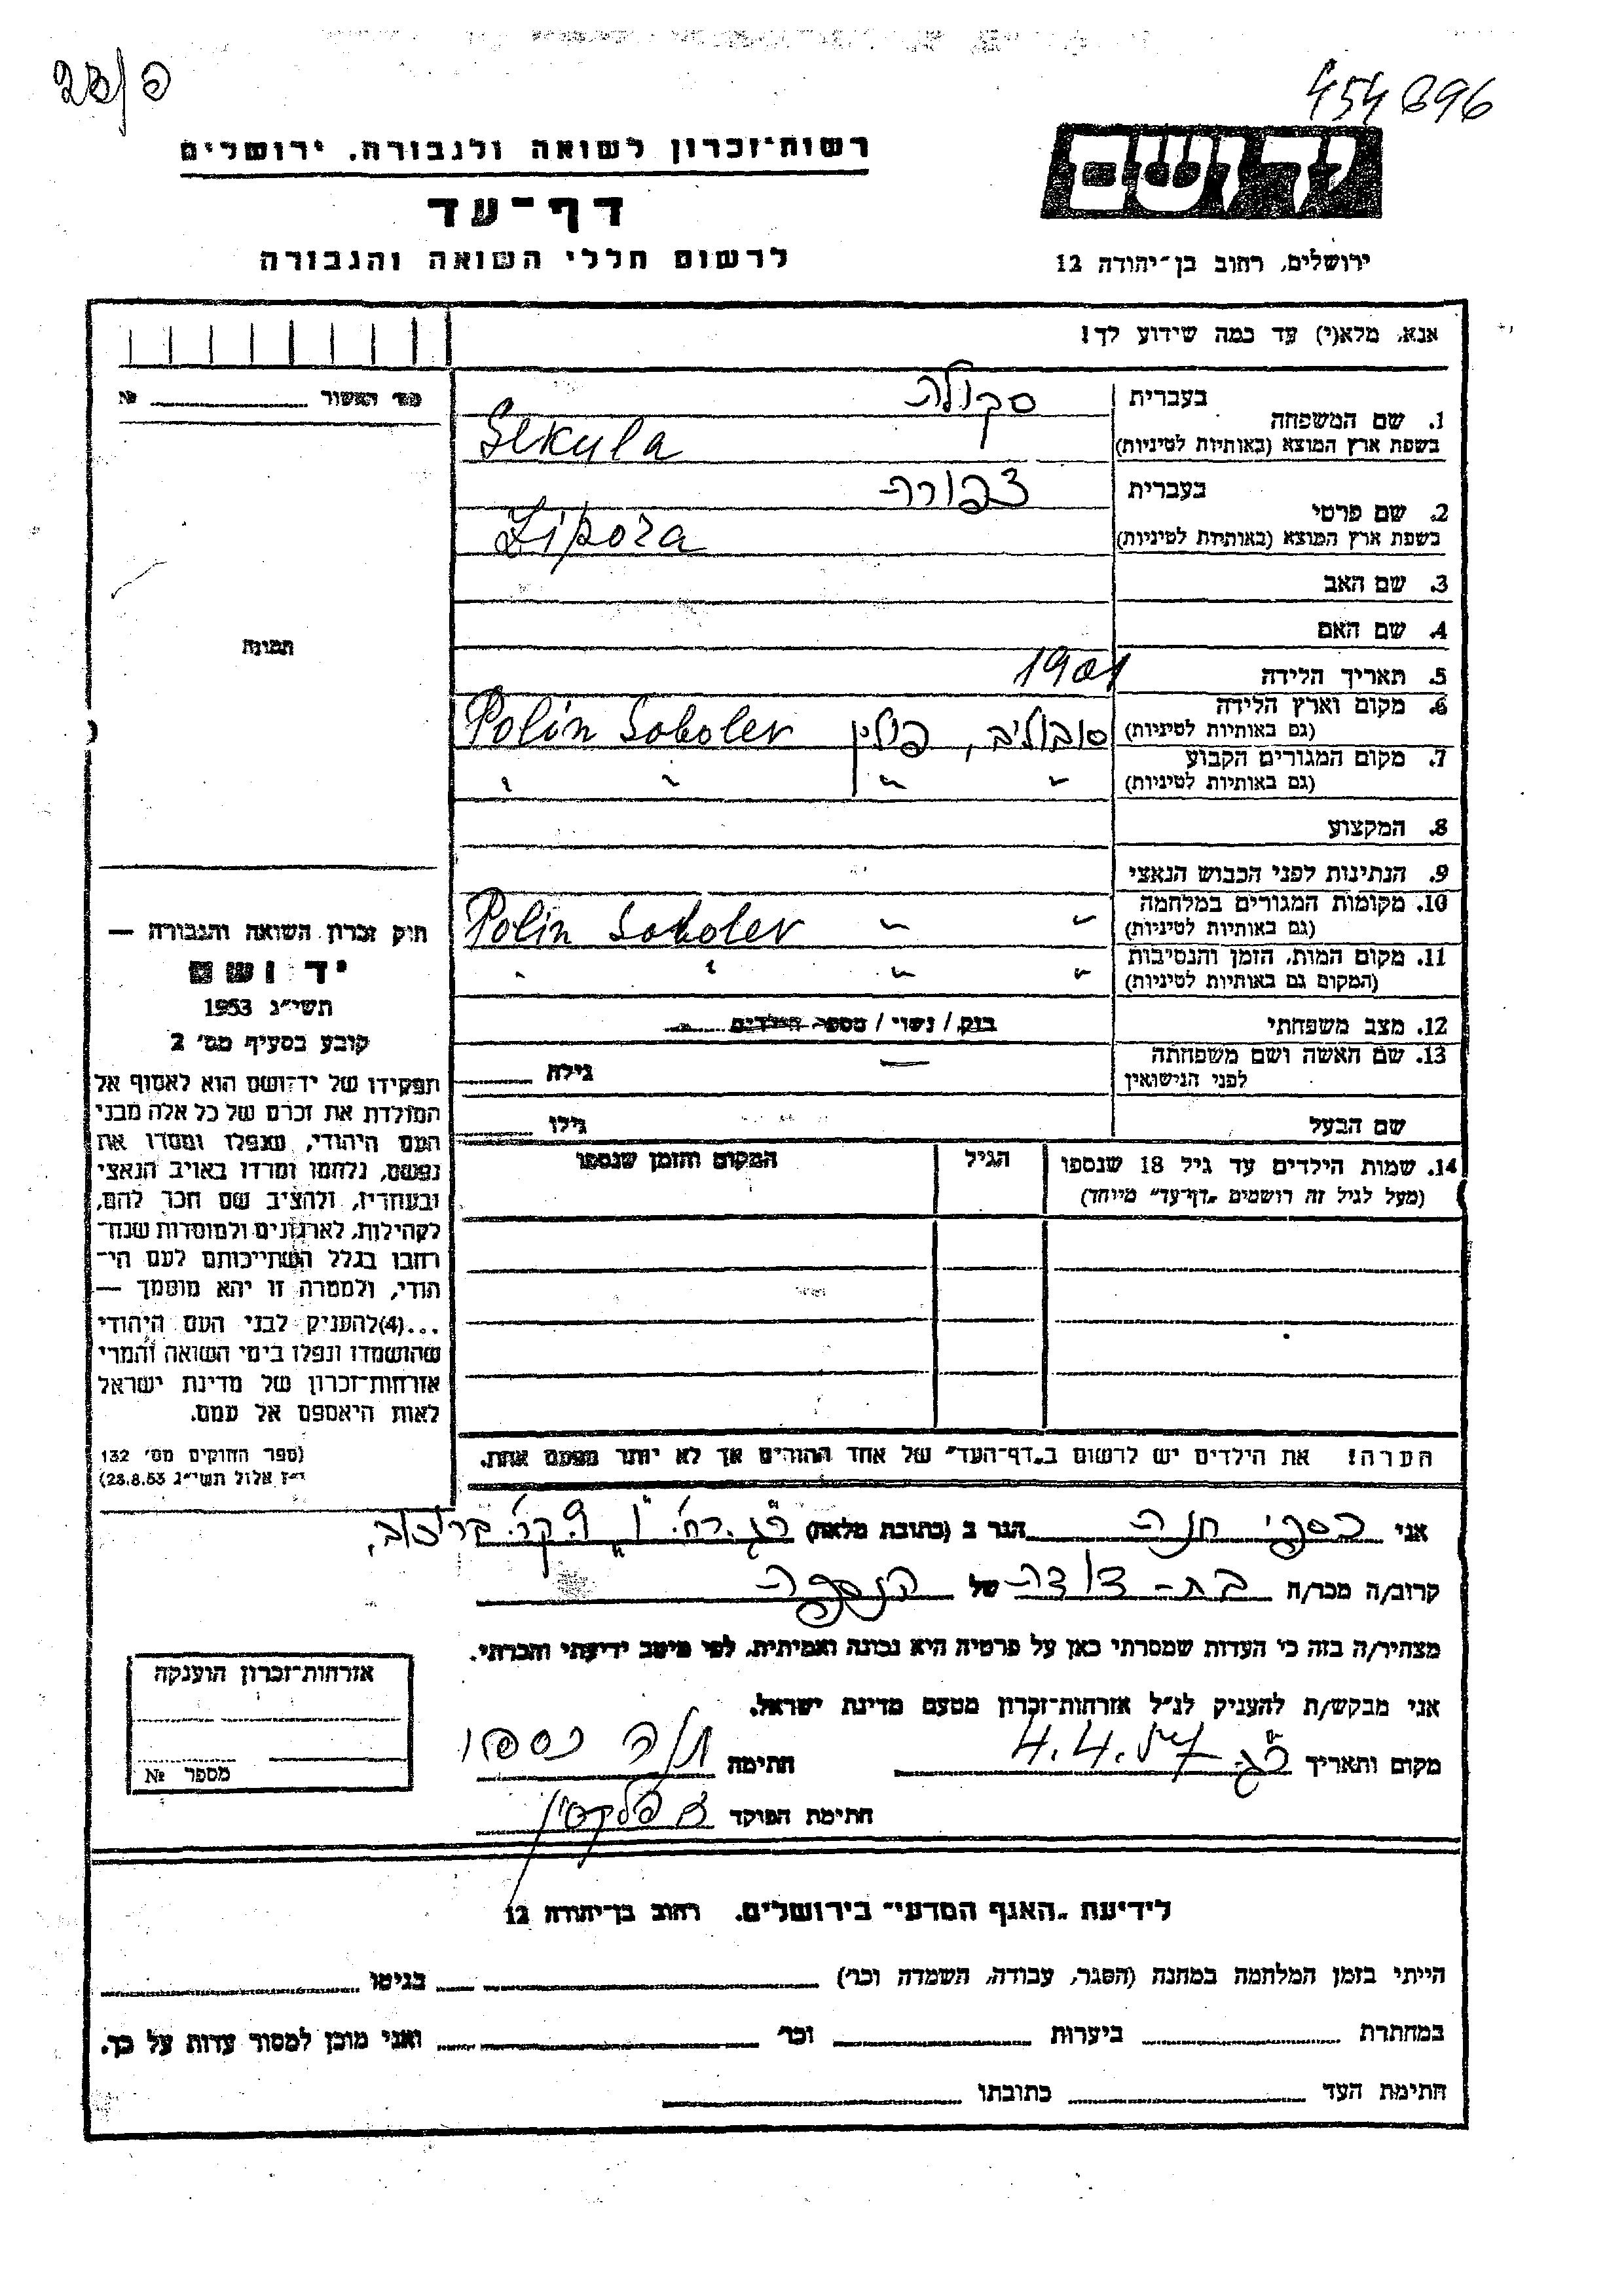 454896
רשות־זכרון לשואה ולגבורה. ירושלים
דף־עד
לרשום חללי השואה והגבורה
יד ושם
ירושלים, רחוב בן־יהודה 12
אנא, מלא(י) עד כמה שידוע לך!
מס׳ האשור № 
1. שם המשפחה
בעברית סקולה
בשפת ארץ המוצא (באותיות לטיניות) Sekula
2. שם פרטי
בעברית צפורה
בשפת ארץ המוצא (באותיות לטיניות) Zipora
3. שם האב
4. שם האם
5. תאריך הלידה 1901
6. מקום וארץ הלידה סובוליב, פולין Polin Sobolev
(גם באותיות לטיניות)
7. מקום המגורים הקבוע
(גם באותיות לטיניות) " " " "
8. המקצוע
9. הנתינות לפני הכבוש הנאצי
10. מקומות המגורים במלחמה " " Polin Sobolev
(גם באותיות לטיניות)
11. מקום המות, הזמן והנסיבות
(המקום גם באותיות לטיניות) " " " "
12. מצב משפחתי רווק / נשוי / מספר הילדים
13. שם האשה ושם משפחתה — גילה
לפני הנישואין
שם הבעל גילו
14. שמות הילדים עד גיל 18 שנספו הגיל המקום והזמן שנספו
(מעל לגיל זה רושמים „דף־עד״ מיוחד)
הערה! את הילדים יש לרשום ב„דף־העד״ של אחד ההורים אך לא יותר מפעם אחת.
תמונה
חוק זכרון השואה והגבורה —
יד ושם
תשי״ג 1953
קובע בסעיף מס׳ 2
תפקידו של יד־ושם הוא לאסוף אל
המולדת את זכרם של כל אלה מבני
העם היהודי, שנפלו ומסרו את
נפשם, נלחמו ומרדו באויב הנאצי
ובעוזריו, ולהציב שם וזכר להם,
לקהילות, לארגונים ולמוסדות שנח־
רבו בגלל השתייכותם לעם הי־
הודי, ולמטרה זו יהא מוסמך —
...(4)להעניק לבני העם היהודי
שהושמדו ונפלו בימי השואה והמרי
אזרחות־זכרון של מדינת ישראל
לאות היאספם אל עמם.
(ספר החוקים מס׳ 132
י״ז אלול תשי״ג 28.8.53)
אני כספי חנה הגר ב (כתובת מלאה) ר״ג. רח׳
קרוב/ה מכר/ה בת-דודה של הנספה
מצהיר/ה בזה כי העדות שמסרתי כאן על פרטיה היא נכונה ואמיתית, לפי מיטב ידיעתי והכרתי.
אני מבקש/ת להעניק לנ״ל אזרחות־זכרון מטעם מדינת ישראל.
מקום ותאריך ר״ג 4.4.57 חתימה חנה כספי
חתימת הפוקד
אזרחות־זכרון הוענקה
מספר №
לידיעת „האגף המדעי״ בירושלים. רחוב בן־יהודה 12
הייתי בזמן המלחמה במחנה (הסגר, עבודה, השמדה וכר׳) בגיטו
במחתרת ביערות וכר׳ ואני מוכן למסור עדות על כך.
חתימת העד כתובתו